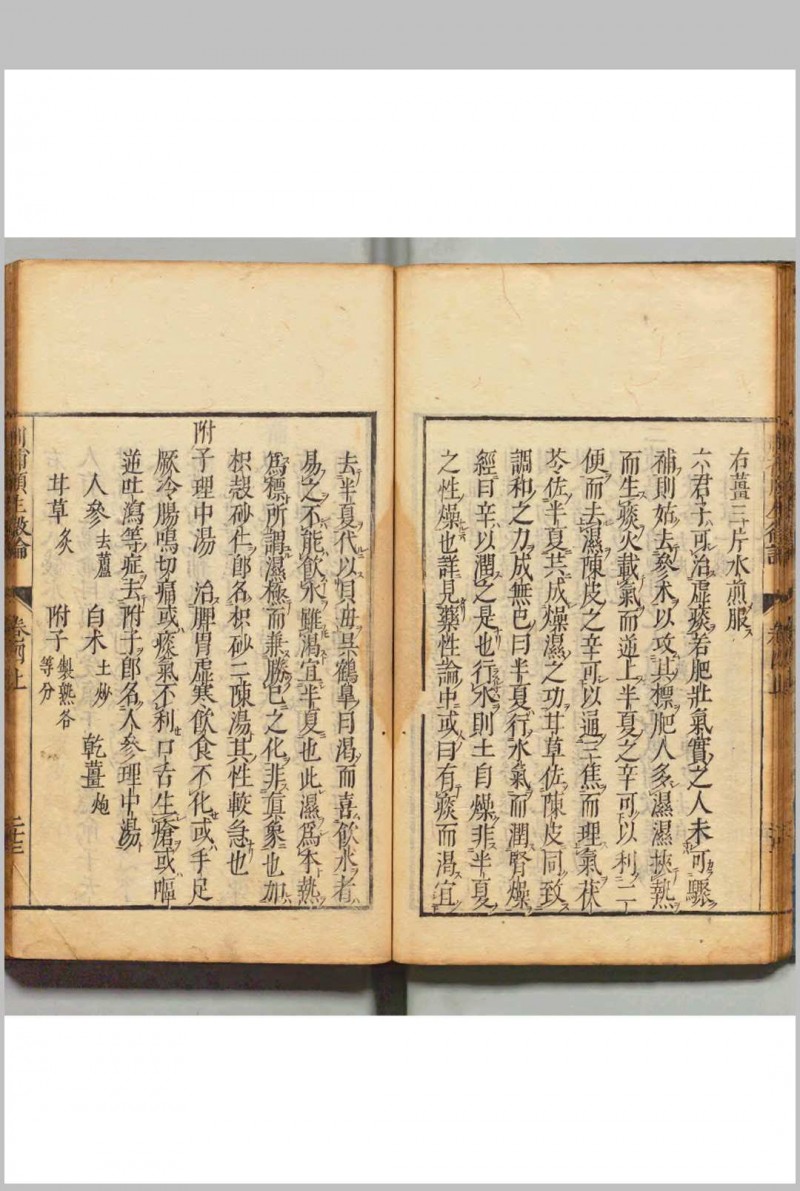 右薑三片水煎服
六君子可治虛痰若肥壯氣實之人未可驟
補則姑去參朮以攻其標肥人多濕濕挾熱
而生痰火載氣而逆上半夏之辛可以利二
便而去濕陳皮之辛可以通三焦而理氣茯
苓佐半夏共成燥濕之功甘草佐陳皮同致
調和之力成無已曰半夏行水氣而潤腎燥
經曰辛以潤之是也行水則土自燥非半夏
之性燥也詳見藥性論中或曰有痰而渴宜
去半夏代以貝毋吳鶴皐曰渴而喜飲水者
易之不能飲水雖渴宜半夏也此濕爲本熱
爲標所謂濕極而兼勝已之化非真象也加
枳殼砂仁郎名枳砂二陳湯其性較急也
附子理中湯　治脾胃虛寒飲食不化或手足
厥冷腸鳴切痛或痰氣不利口舌生瘡或嘔
逆吐瀉等症去附子郎名人參理中湯
人參去蘆　白朮土炒　乾薑炮
甘草炙　附子製熟各等分
刪補頤生微論　卷四上　二十三